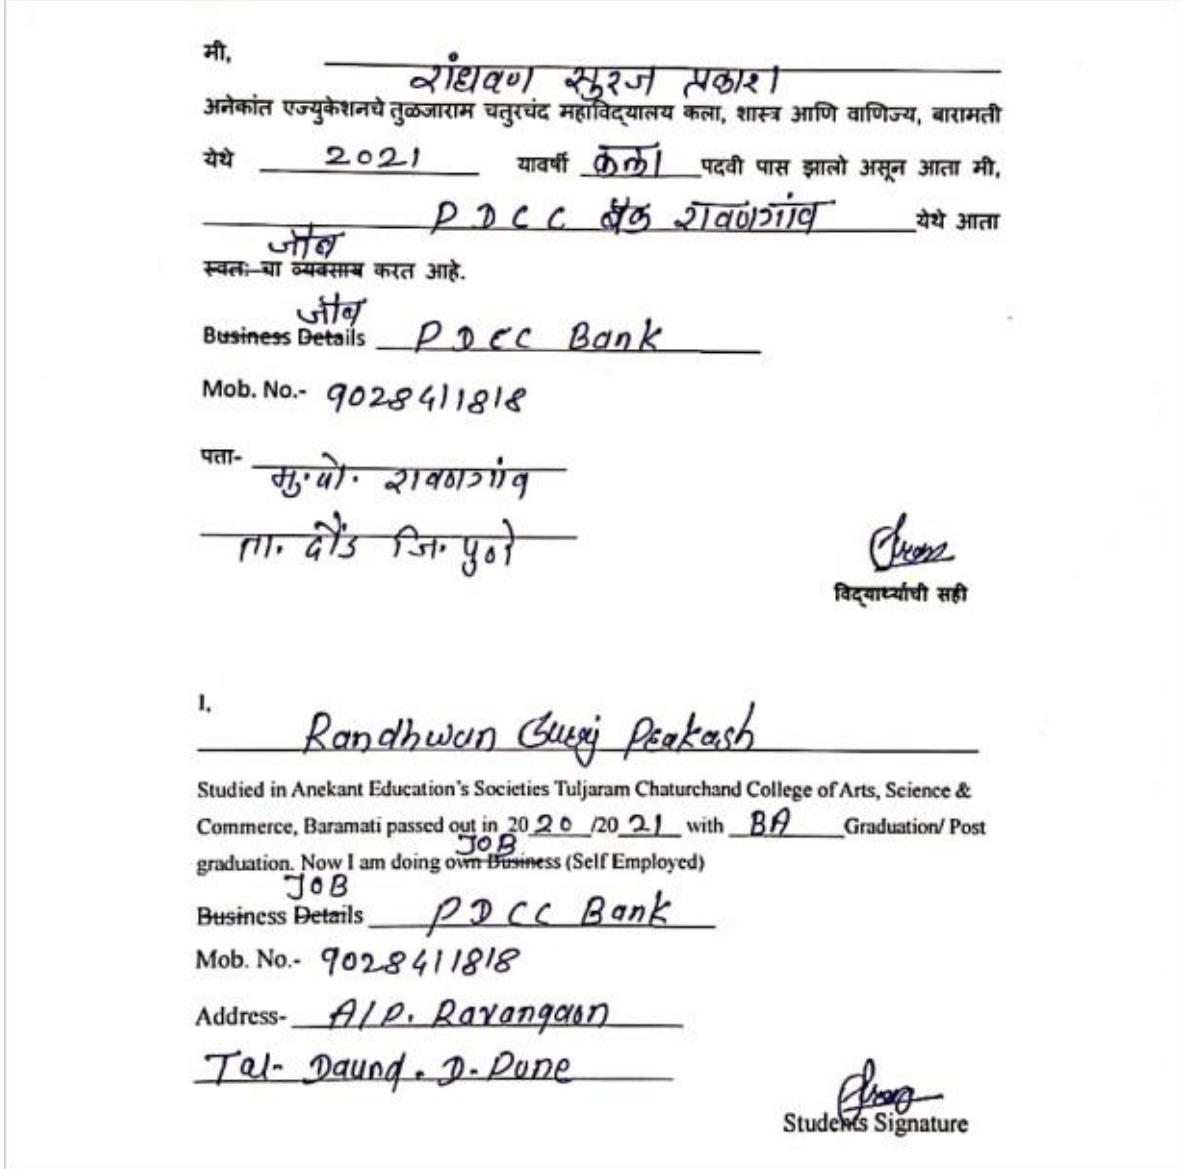 मी,
रांधवण सुरज प्रकाश
अनेकांत एज्युकेशनचे तुळजाराम चतुरचंद महाविद्यालय कला, शास्त्र आणि वाणिज्य, बारामती
येथे 2021 यावर्षी कला पदवी पास झालो असून आता मी,
PDCC बँक रावणगांव येथे आता
जॉब
स्वतः चा व्यवसाय करत आहे.
जॉब
Business Details PDCC Bank
Mob. No.- 9028411818
पता- मु. पो. रावणगांव
ता. दौंड जि. पुणे
विद्यार्थ्याची सही
I,
Randhwan Suraj Prakash
Studied in Anekant Education's Societies Tuljaram Chaturchand College of Arts, Science &
Commerce, Baramati passed out in 2020 /2021 with BA Graduation/ Post
JOB
graduation. Now I am doing own Business (Self Employed)
JOB
Business Details PDCC Bank
Mob. No.- 9028411818
Address- A/P. Ravangaon
Tal- Daund. D- Pune
Students Signature